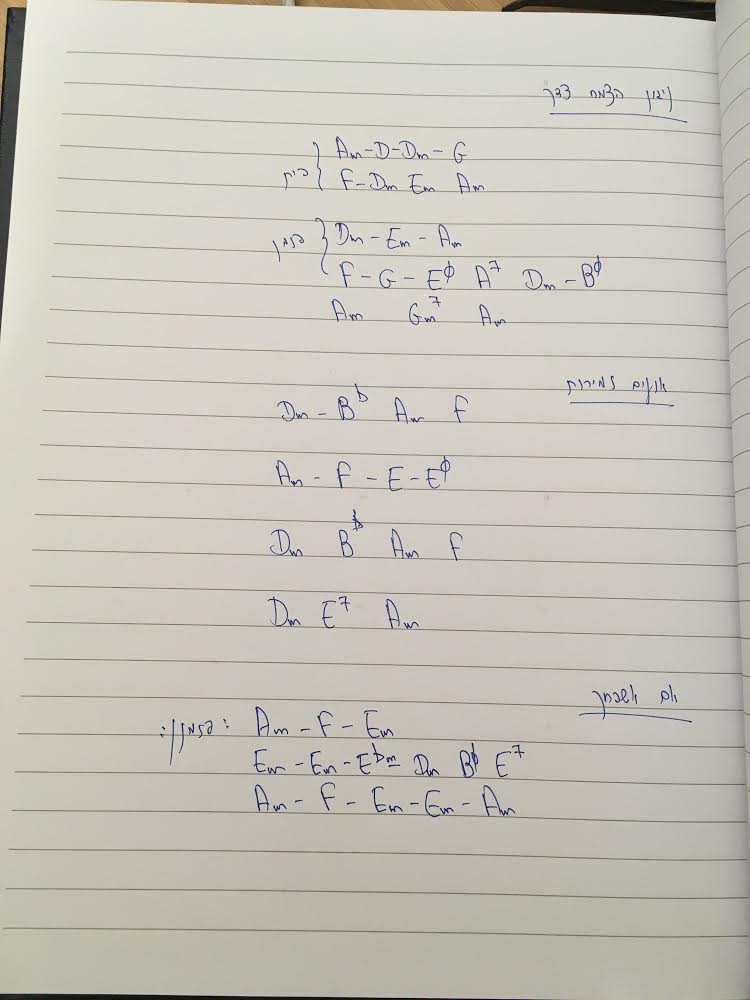 ניגון הצמח צדק
בית } Am-D-Dm-G
F-Dm Em Am
פזמון } Dm-Em-Am
F-G-Eφ A7 Dm-Bφ
Am Gm7 Am
אנעים זמירות
Dm-Bb Am F
Am-F-E-Eφ
Dm Bb Am F
Dm E7 Am
אם אשכחך
:פזמון: Am-F-Em
Em-Em-Ebm= Dm Bφ E7
Am-F-Em-Em-Am